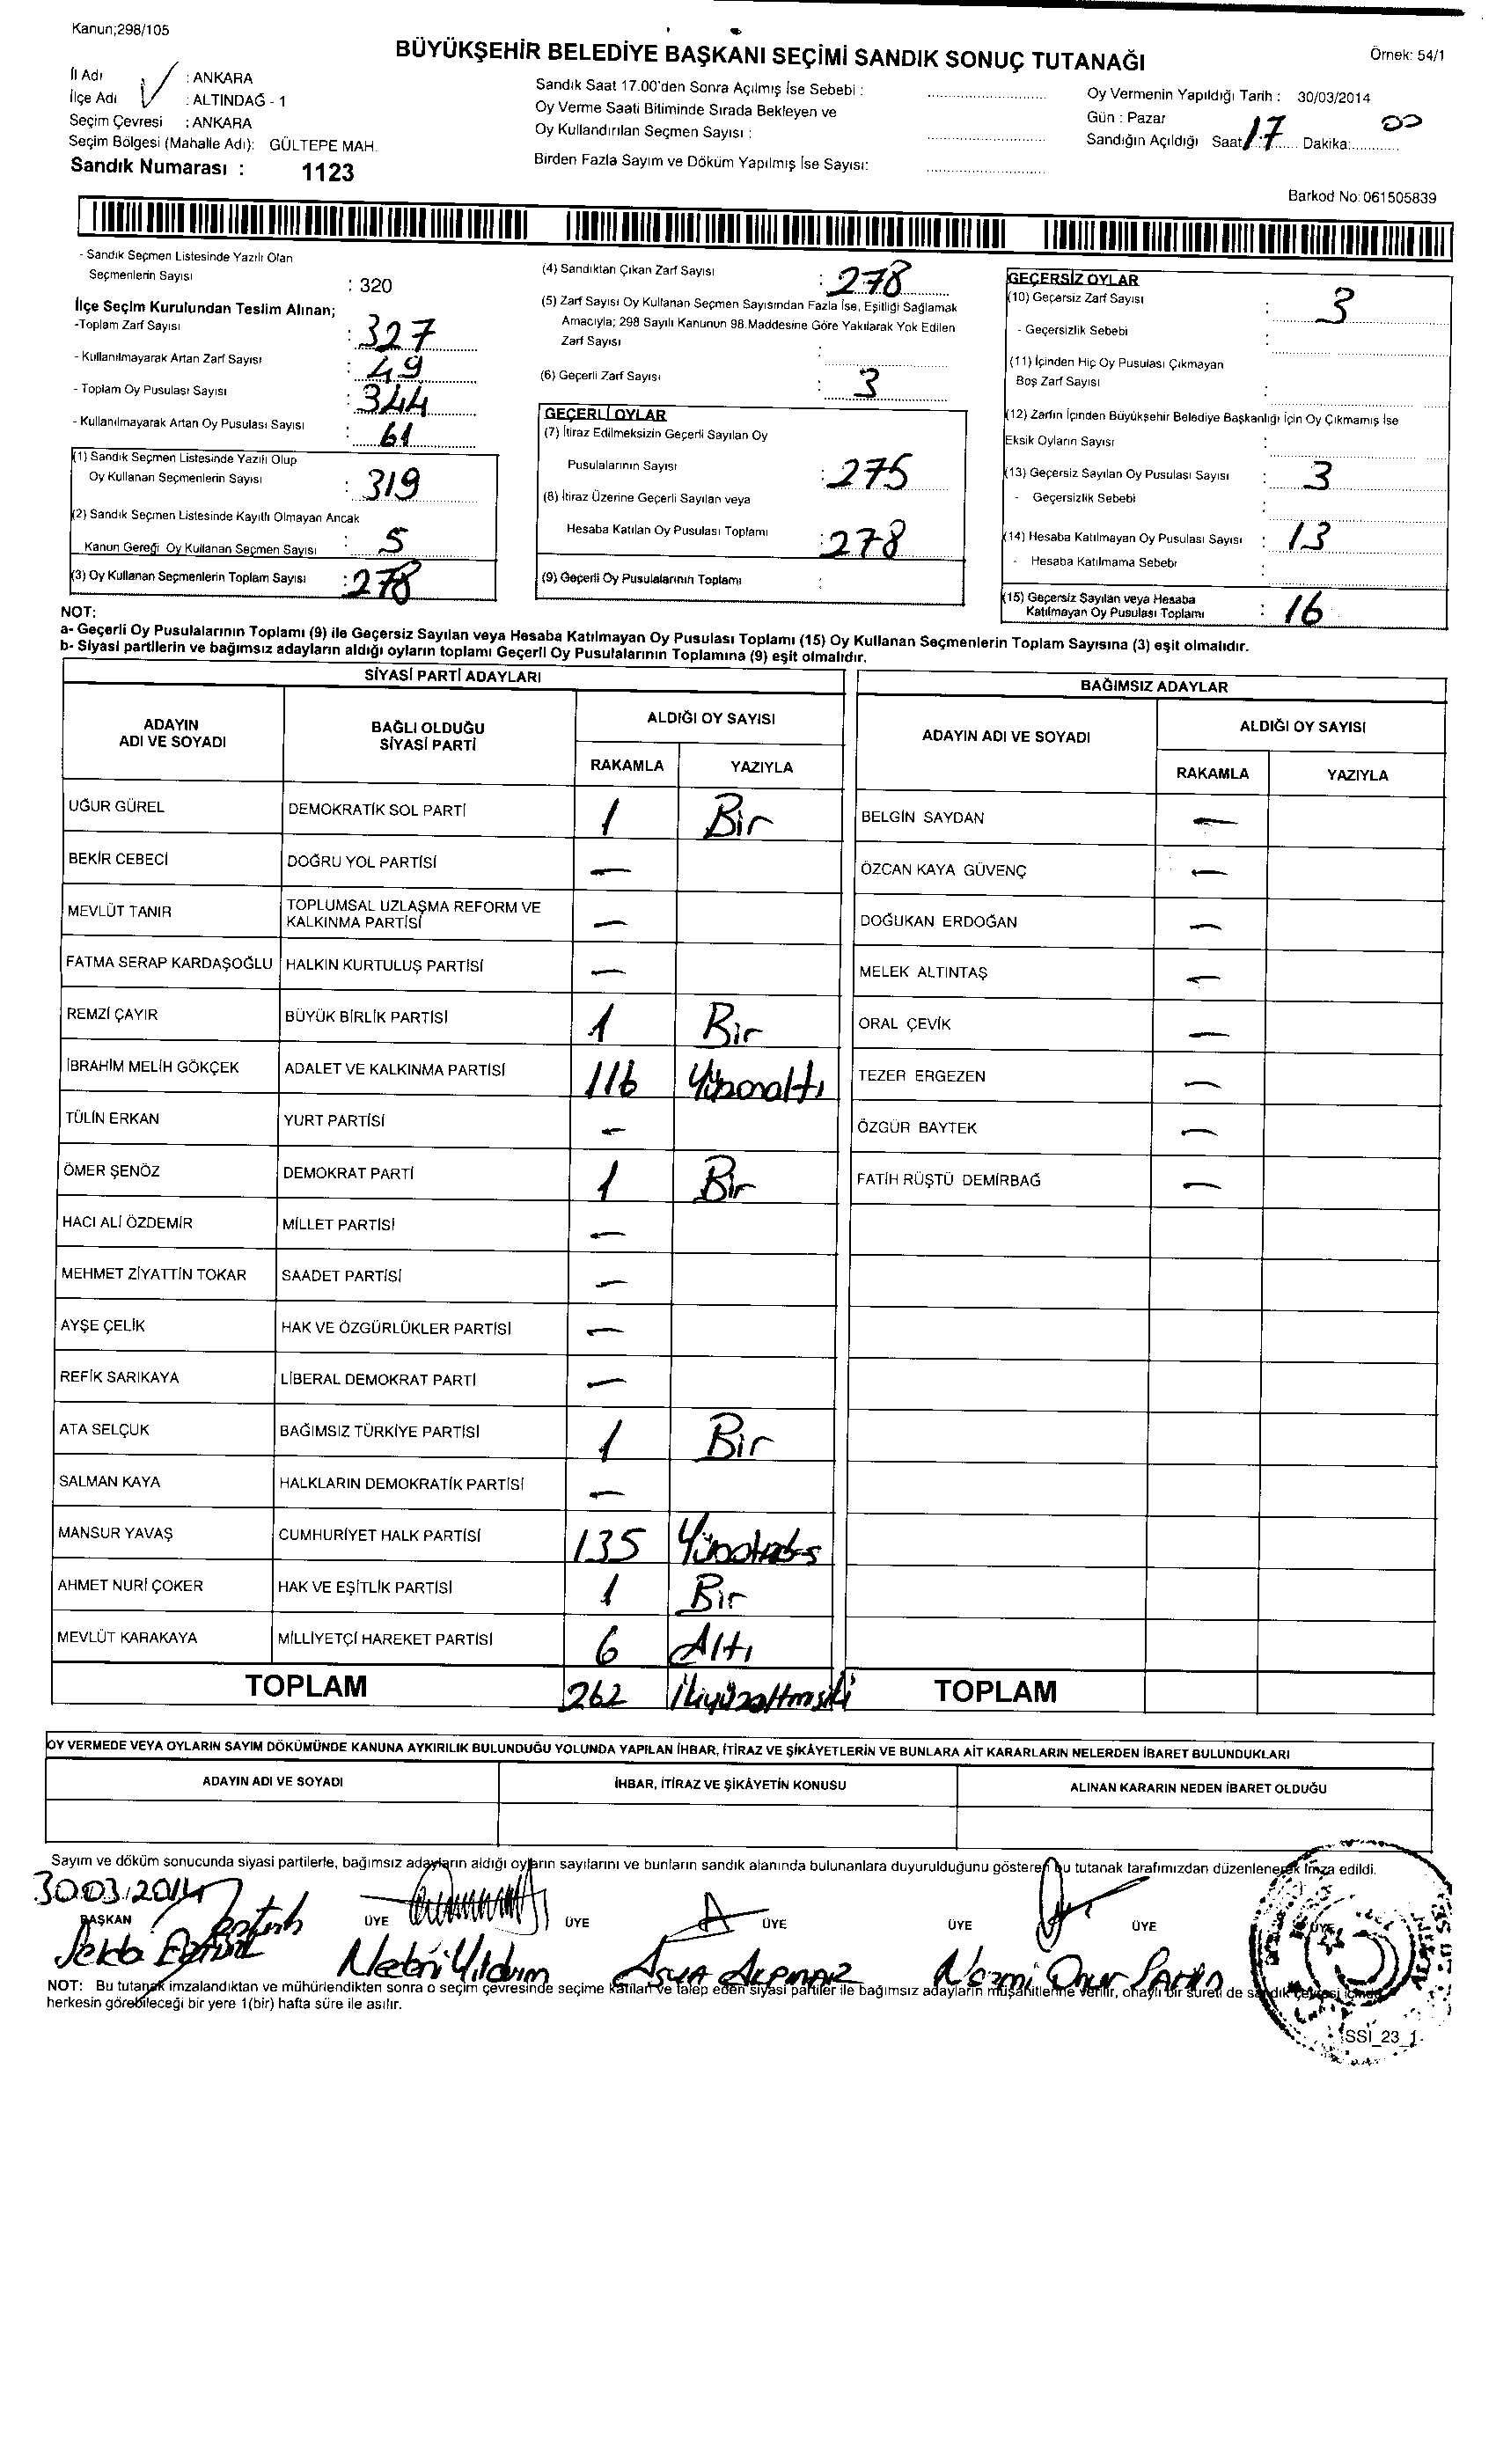 Kanun;298/105
BÜYÜKŞEHİR BELEDİYE BAŞKANI SEÇİMİ SANDIK SONUÇ TUTANAĞI
Örnek: 54/1
İl Adı : ANKARA
İlçe Adı : ALTINDAĞ - 1
Seçim Çevresi : ANKARA
Seçim Bölgesi (Mahalle Adı): GÜLTEPE MAH.
Sandık Numarası : 1123
Sandık Saat 17.00'den Sonra Açılmış İse Sebebi :
Oy Verme Saati Bitiminde Sırada Bekleyen ve
Oy Kullandırılan Seçmen Sayısı :
Birden Fazla Sayım ve Döküm Yapılmış İse Sayısı:
Oy Vermenin Yapıldığı Tarih : 30/03/2014
Gün : Pazar
Sandığın Açıldığı Saat 17 Dakika: 00
Barkod No: 061505839
- Sandık Seçmen Listesinde Yazılı Olan
Seçmenlerin Sayısı : 320
İlçe Seçim Kurulundan Teslim Alınan;
-Toplam Zarf Sayısı : 327
- Kullanılmayarak Artan Zarf Sayısı : 49
- Toplam Oy Pusulası Sayısı : 344
- Kullanılmayarak Artan Oy Pusulası Sayısı : 61
(1) Sandık Seçmen Listesinde Yazılı Olup
Oy Kullanan Seçmenlerin Sayısı : 319
(2) Sandık Seçmen Listesinde Kayıtlı Olmayan Ancak
Kanun Gereği Oy Kullanan Seçmen Sayısı : 5
(3) Oy Kullanan Seçmenlerin Toplam Sayısı : 278
(4) Sandıktan Çıkan Zarf Sayısı : 278
(5) Zarf Sayısı Oy Kullanan Seçmen Sayısından Fazla İse, Eşitliği Sağlamak
Amacıyla; 298 Sayılı Kanunun 98.Maddesine Göre Yakılarak Yok Edilen
Zarf Sayısı :
(6) Geçerli Zarf Sayısı : 3
GEÇERLİ OYLAR
(7) İtiraz Edilmeksizin Geçerli Sayılan Oy
Pusulalarının Sayısı : 275
(8) İtiraz Üzerine Geçerli Sayılan veya
Hesaba Katılan Oy Pusulası Toplamı : 278
(9) Geçerli Oy Pusulalarının Toplamı :
GEÇERSİZ OYLAR
(10) Geçersiz Zarf Sayısı : 3
- Geçersizlik Sebebi :
(11) İçinden Hiç Oy Pusulası Çıkmayan
Boş Zarf Sayısı :
(12) Zarfın İçinden Büyükşehir Belediye Başkanlığı İçin Oy Çıkmamış İse
Eksik Oyların Sayısı :
(13) Geçersiz Sayılan Oy Pusulası Sayısı : 3
- Geçersizlik Sebebi :
(14) Hesaba Katılmayan Oy Pusulası Sayısı : 13
- Hesaba Katılmama Sebebi :
(15) Geçersiz Sayılan veya Hesaba
Katılmayan Oy Pusulası Toplamı : 16
NOT:
a- Geçerli Oy Pusulalarının Toplamı (9) ile Geçersiz Sayılan veya Hesaba Katılmayan Oy Pusulası Toplamı (15) Oy Kullanan Seçmenlerin Toplam Sayısına (3) eşit olmalıdır.
b- Siyasi partilerin ve bağımsız adayların aldığı oyların toplamı Geçerli Oy Pusulalarının Toplamına (9) eşit olmalıdır.
SİYASİ PARTİ ADAYLARI
ADAYIN ADI VE SOYADI BAĞLI OLDUĞU SİYASİ PARTİ ALDIĞI OY SAYISI
RAKAMLA YAZIYLA
UĞUR GÜREL DEMOKRATİK SOL PARTİ 1 Bir
BEKİR CEBECİ DOĞRU YOL PARTİSİ —
MEVLÜT TANIR TOPLUMSAL UZLAŞMA REFORM VE KALKINMA PARTİSİ —
FATMA SERAP KARDAŞOĞLU HALKIN KURTULUŞ PARTİSİ —
REMZİ ÇAYIR BÜYÜK BİRLİK PARTİSİ 1 Bir
İBRAHİM MELİH GÖKÇEK ADALET VE KALKINMA PARTİSİ 116 Yüzonaltı
TÜLİN ERKAN YURT PARTİSİ —
ÖMER ŞENÖZ DEMOKRAT PARTİ 1 Bir
HACI ALİ ÖZDEMİR MİLLET PARTİSİ —
MEHMET ZİYATTİN TOKAR SAADET PARTİSİ —
AYŞE ÇELİK HAK VE ÖZGÜRLÜKLER PARTİSİ —
REFİK SARIKAYA LİBERAL DEMOKRAT PARTİ —
ATA SELÇUK BAĞIMSIZ TÜRKİYE PARTİSİ 1 Bir
SALMAN KAYA HALKLARIN DEMOKRATİK PARTİSİ —
MANSUR YAVAŞ CUMHURİYET HALK PARTİSİ 135
AHMET NURİ ÇOKER HAK VE EŞİTLİK PARTİSİ 1 Bir
MEVLÜT KARAKAYA MİLLİYETÇİ HAREKET PARTİSİ 6 Altı
TOPLAM 262
BAĞIMSIZ ADAYLAR
ADAYIN ADI VE SOYADI ALDIĞI OY SAYISI
RAKAMLA YAZIYLA
BELGİN SAYDAN —
ÖZCAN KAYA GÜVENÇ —
DOĞUKAN ERDOĞAN —
MELEK ALTINTAŞ —
ORAL ÇEVİK —
TEZER ERGEZEN —
ÖZGÜR BAYTEK —
FATİH RÜŞTÜ DEMİRBAĞ —
TOPLAM
OY VERMEDE VEYA OYLARIN SAYIM DÖKÜMÜNDE KANUNA AYKIRILIK BULUNDUĞU YOLUNDA YAPILAN İHBAR, İTİRAZ VE ŞİKÂYETLERİN VE BUNLARA AİT KARARLARIN NELERDEN İBARET BULUNDUKLARI
ADAYIN ADI VE SOYADI İHBAR, İTİRAZ VE ŞİKÂYETİN KONUSU ALINAN KARARIN NEDEN İBARET OLDUĞU
Sayım ve döküm sonucunda siyasi partilerle, bağımsız adayların aldığı oyların sayılarını ve bunların sandık alanında bulunanlara duyurulduğunu gösteren bu tutanak tarafımızdan düzenlenerek imza edildi.
30.03.2014
BAŞKAN ÜYE ÜYE ÜYE ÜYE ÜYE ÜYE
Yıldırım Asya Akpınar Nazmi Onur
NOT: Bu tutanak imzalandıktan ve mühürlendikten sonra o seçim çevresinde seçime katılan ve talep eden siyasi partiler ile bağımsız adayların müşahitlerine verilir, onaylı bir sureti de sandık çevresi içinde
herkesin görebileceği bir yere 1(bir) hafta süre ile asılır.
SSİ_23_1